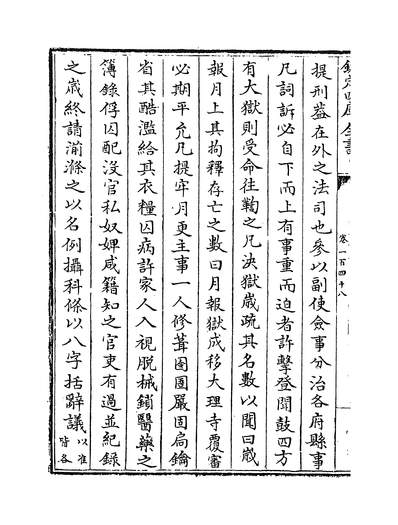 欽定四庫全書
卷一百四十八
提刑葢在外之法司也參以副使僉事分治各府縣事
凡詞訴必自下而上有事重而迫者許擊登聞鼓四方
有大獄則受命往鞫之凡決獄歲疏其名數以聞曰歲
報月上其拘釋存亡之數曰月報獄成移大理寺覆審
必期平允凡提牢月更主事一人修葺囹圄嚴固扃鑰
省其酷濫給其衣糧囚病許家人入視脱械鎖醫藥之
簿錄俘囚配没官私奴婢咸籍知之官吏有過並紀錄
之歲終請湔滌之以名例攝科條以八字括辭議以准
皆各